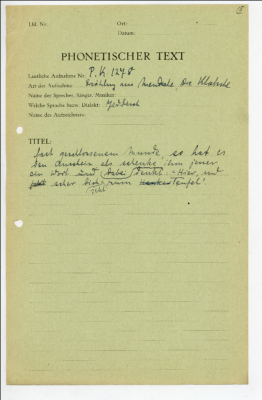 Lfd. Nr.: Ort:
Datum:
PHONETISCHER TEXT
Lautliche Aufnahme Nr. P.K. 1278
Art der Aufnahme: Erzählung aus Mendale, Die Kliatsche
Name des Sprechers, Sängers, Musikers:
Welche Sprache bezw. Dialekt: Jiddisch
Name des Aufnehmers:
TITEL:
geschlossenem Munde, so hat es
den Anschein als schenke ihm jener
ein Wort und dabei denkt: Hier, und
scher Dich zum Teufel!